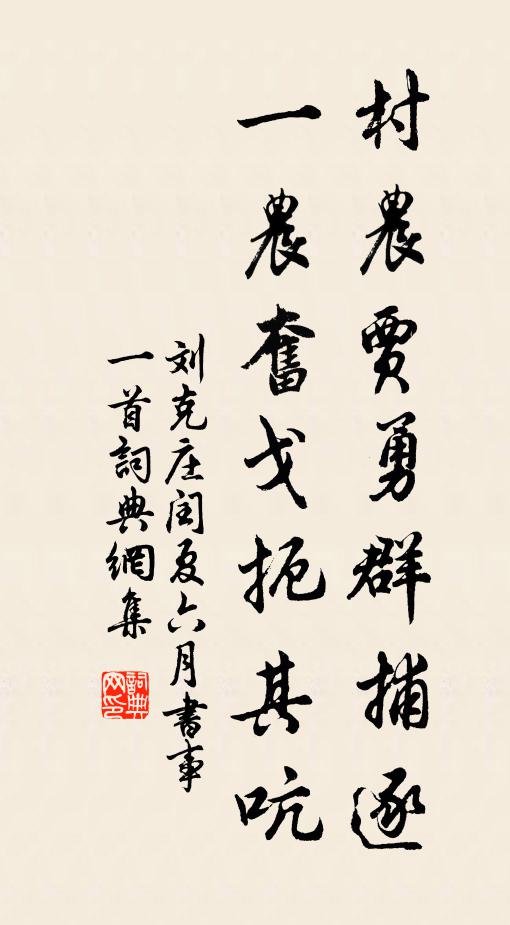 村農賈勇群捕逐
一農奮戈扼其吭
刘克庄闰夏六月書事
一首詞典網集
詞典
网印